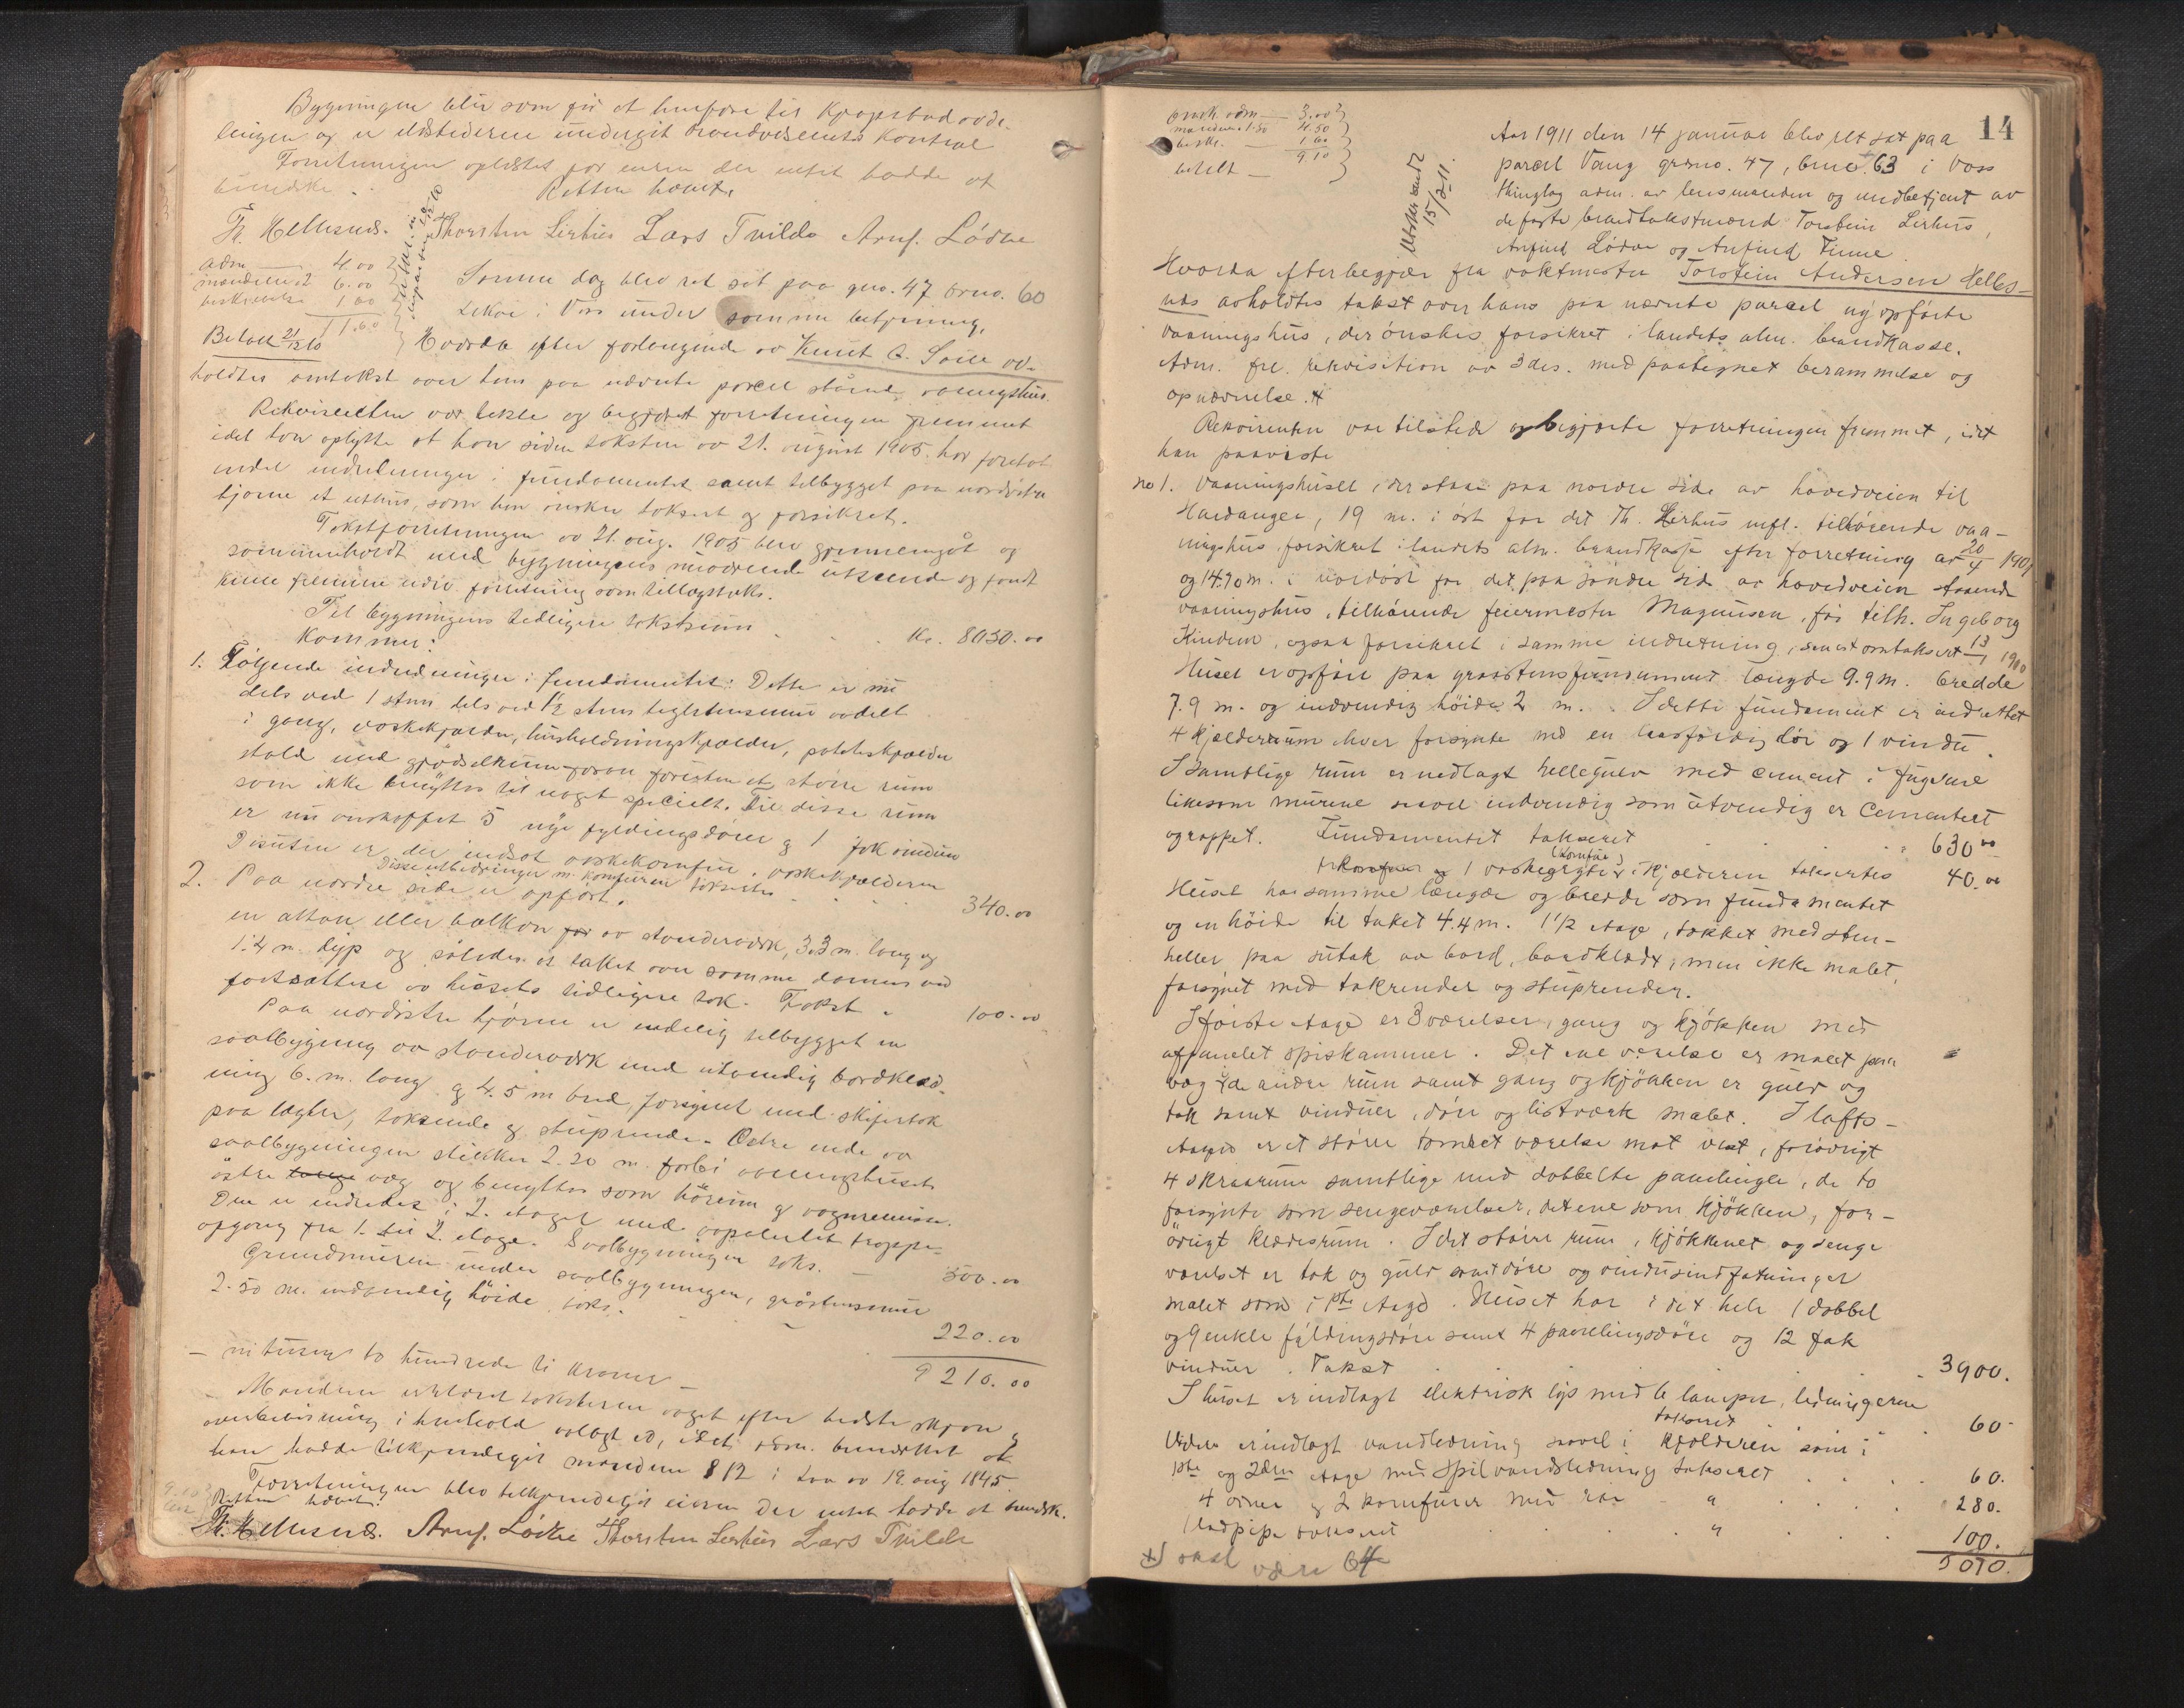 Bygningen blir som før at henføre til Kjøpstadavde-
lingen og er ildstederne undergit brandvæsenets Kontrol
Forretningen oplæstes for eieren der intet hadde at
bemerke. Retten hævet.
Th. Hellesnes. Thorsten Lirhus Lars Tvilde Arnf. Lødve
adm 4.00
mændene 2 6.00
beskrivelse 1.60
11.60
Betalt 21/12 10
Samme dag blev ret sat paa gno. 47 brno. 60
Lekve i Voss under samme betjening.
Hvorda efter forlangende av Knut A. Saue av-
holdtes omtakst over hans paa nævnte parcel stående vaaningshus.
Rekvirenten var tilstede og begjæret forretningen fremmet
idet han oplyste at han siden taksten av 21. august 1905 har foretat
endel indredninger i fundamentet samt tilbygget paa nordøstre
hjørne et uthus, som han ønsker taksert og forsikret.
Takstforretningen av 21. aug. 1905 blev gjennemgåt og
sammenholdt med bygningens nuværende utseende og fandt
kunne fremme nærv. forretning som tillægstakst.
Til bygningens tidligere takstsum . . . Kr. 8050.00
Kommer:
1. Følgende indredninger i fundamentet: Dette er nu
dels ved 1 stens dels ved 1/2 stens teglstensmur avdelt
i gang, vaskekjælder, husholdningskjælder, potetskjælder
stald med gjødselrum foran foruten et større rum
som ikke benyttes til noget specielt. Til disse rum
er nu anskaffet 5 nye fyldingsdører og 1 fak vindu
Desuten er der indsat vaskekomfur i vaskekjælderen
Disse utbedringer m. komfuren takseres . . . 340.00
2. Paa nordre side er opført.
en altan eller balkon for av stenderverk, 3.3 m. lang og
1.4 m. dyp og således at taket over samme dannes ved
fortsættelse av husets tidligere tak. Takst . 100.00
Paa nordøstre hjørne er endelig tilbygget en
svalbygning av stenderverk med utvendig bordklæd-
ning 6. m. lang og 4.5 m bred, forsynet med skifertak
paa lægter, takrende og stuprende. Østre ende av
svalbygningen stikker 2.20 m. forbi vaaningshusets
østre væg og benyttes som hørum og vognremisse.
Den er indredet i 2. etager med avpanelet trappe-
opgang fra 1. til 2. etage. Svalbygningen taks. — 500.00
Grundmuren under svalbygningen, gråstensmur
2.50 m. indvendig høide taks. . — 220.00
9210.00
— nitusen to hundrede ti kroner —
Mændene erklæret taksterne avgit efter bedste skjøn og
overbevisning i henhold avlagt ed, idet adm. bemerket at
han hadde tilkjendegit mændene § 12 i lov av 19. aug 1845.
Forretningen blev tilkjendegit eieren der intet hadde at bemerk.
Retten hævet.
Th. Hellesnes. Arnf. Lødve Thorsten Lirhus Lars Tvilde
14
brandk. adm — 3.00
mændene 1.50 4.50
beskr. — 1.60
9.10
betalt —
Utskr. sendt
15/2 11.
Aar 1911 den 14 januar blev ret sat paa
parcel Vang grsno. 47, brno. 63 i Voss
thinglag adm. av lensmanden og medbetjent av
de faste brandtakstmænd Torstein Lirhus,
Arnfind Lødve og Anfind Finne
Hvorda efter begjær fra vaktmester Torstein Andersen Helles-
nes avholdtes takst over hans paa nævnte parcel ny opførte
vaaningshus, der ønskes forsikret i landets alm. brandkasse.
Adm. fre. rekvisition av 3 ds. med paategnet berammelse og
opnævnelse. ×
Rekvirenten var tilstede og begjærte forretningen fremmet, idet
han paaviste
no 1. Vaaningshuset, der staar paa nordre side av hovedveien til
Hardanger, 19 m. i øst for det Th. Lirhus mfl. tilhørende vaa-
ningshus, forsikret i landets alm. brandkasse efter forretning av 20/4 1901
og 14.70 m. i nordøst for det paa søndre side av hovedveien staaende
vaaningshus, tilhørende feiermester Magnussen, før tilh. Ingeborg
Kindem, ogsaa forsikret i samme indretning, senest omtaksert 13/1 1910
Huset er opført paa graastensfundament længde 9.9 m. bredde
7.9 m. og indvendig høide 2 m. . I dette fundament er indrettet
4 kjælderrum hver forsynte med en laasfærdig dør og 1 vindu.
I samtlige rum er nedlagt hellegulv med cement i fugerne
likesom murene saavel indvendig som utvendig er Cementert
og rappet. Fundamentet takseret . 630.00
1 vaskegryte (komfur) i Kjælderen takseres 40.00
Huset har samme længde og bredde som fundamentet
og en høide til taket 4.4 m. 1 1/2 etage, takket med sten-
heller paa sutak av bord, bordklædt, men ikke malet,
forsynet med takrender og stuprender.
I første etage er 3 værelser, gang og kjøkken med
afpanelet spiskammer. Det ene værelse er malet paa
væg, de andre rum samt gang og kjøkken er gulv og
tak samt vinduer, døre og listverk malet. I lofts-
etagen er et større tømret værelse mot vest, forøvrigt
4 skraarum samtlige med dobbelte panelinger, de to
forsynte som sengeværelser, det ene som kjøkken, for-
øvrigt klædesrum. I det større rum, kjøkkenet og senge
værelset er tak og gulv samt døre og vindusindfatninger
malet som i 1ste etage. Huset har i det hele 1 dobbel
og 9 enkle fyldingsdøre samt 4 panelingsdøre og 12 fak
vinduer . Takst . . . 3900.
I huset er indlagt elektrisk lys med 6 lamper, ledningerne
takseret . . 60
Videre er indlagt vandledning saavel i Kjælderen som i
1ste og 2den etage med spilvandsledning takseret . . . 60.
4 ovner og 2 komfurer med rør " . . . 280.
1 ladpipe takseret . . . " . . 100.
5070.
×) skal være 64